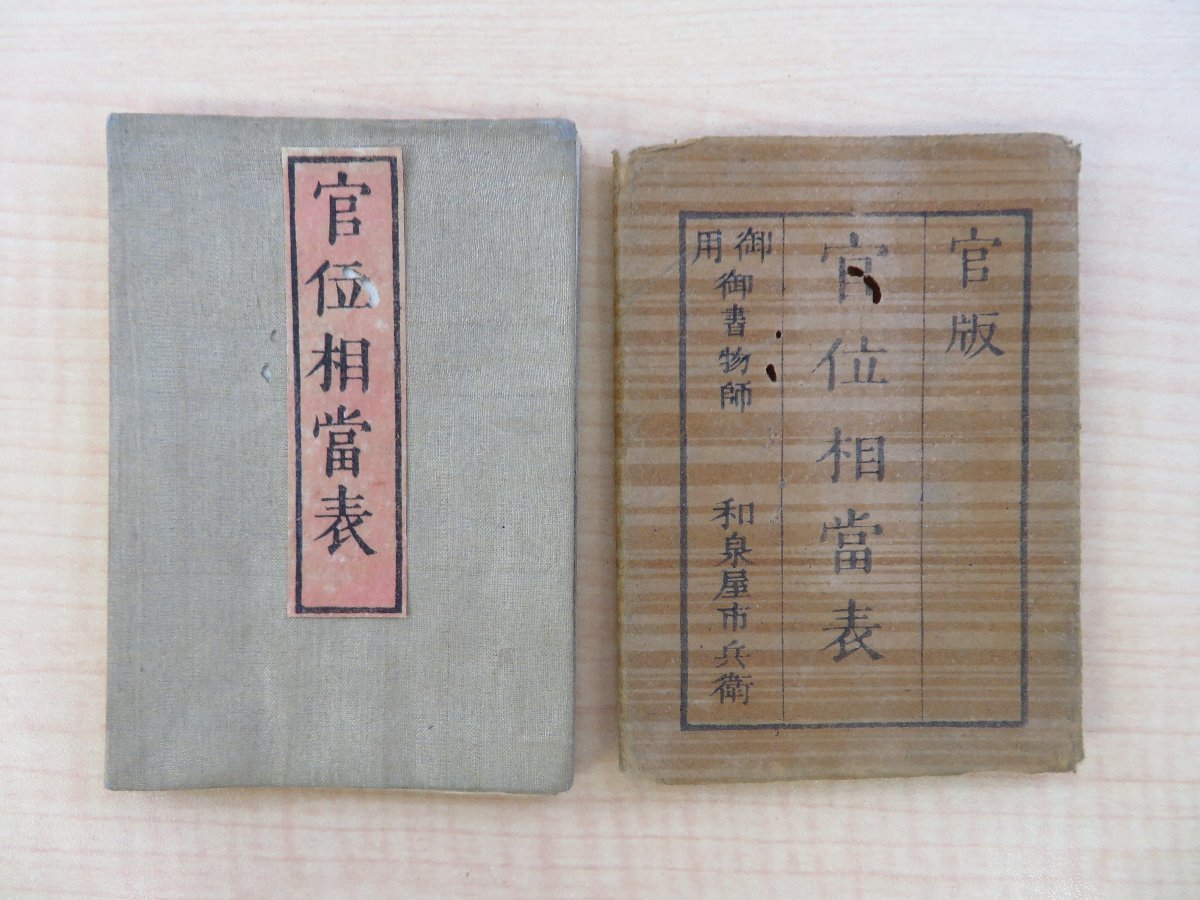 官位相當表
官版
官位相當表
御用
御書物師 和泉屋市兵衛